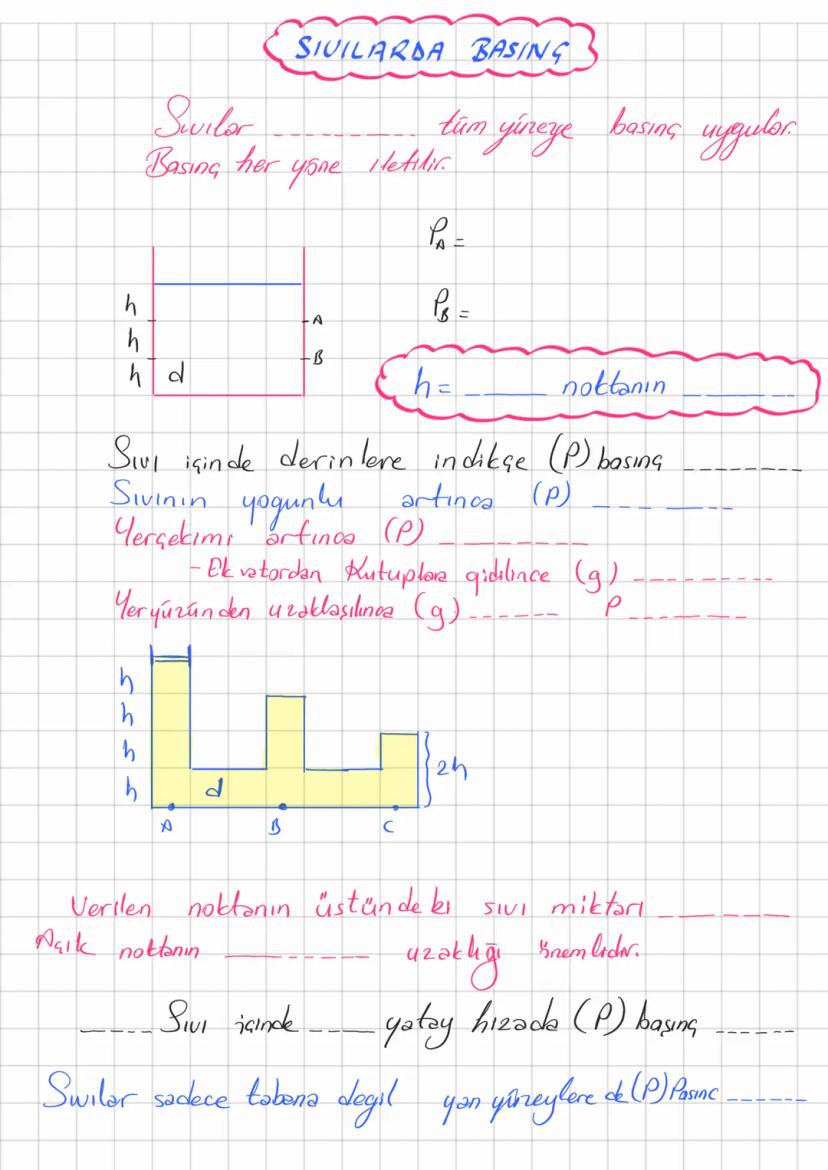 SIVILARDA BASINÇ
Sıvılar _ _ _ _ _ _ _ _ _ tüm yüzeye basınç uygular.
Basınç her yöne iletilir.
P_A =
h
A
P_B =
h
B
h d
h = _____ noktanın _______
Sıvı içinde derinlere indikçe (P) basınç ________
Sıvının yogunlu artınca (P) _______
Yerçekimi artınca (P) ________
- Ekvatordan Kutuplara gidilince (g) ________
Yeryüzünden uzaklaşılınca (g) ______ P ______
h
h
h
2h
h d
A B C
Verilen noktanın üstündeki sıvı miktarı _______
Açık noktanın _______ uzaklığı önemlidir.
____ Sıvı içinde ____ yatay hizada (P) basınç ______
Sıvılar sadece tabana degil yan yüzeylere de (P) Pasınc ______